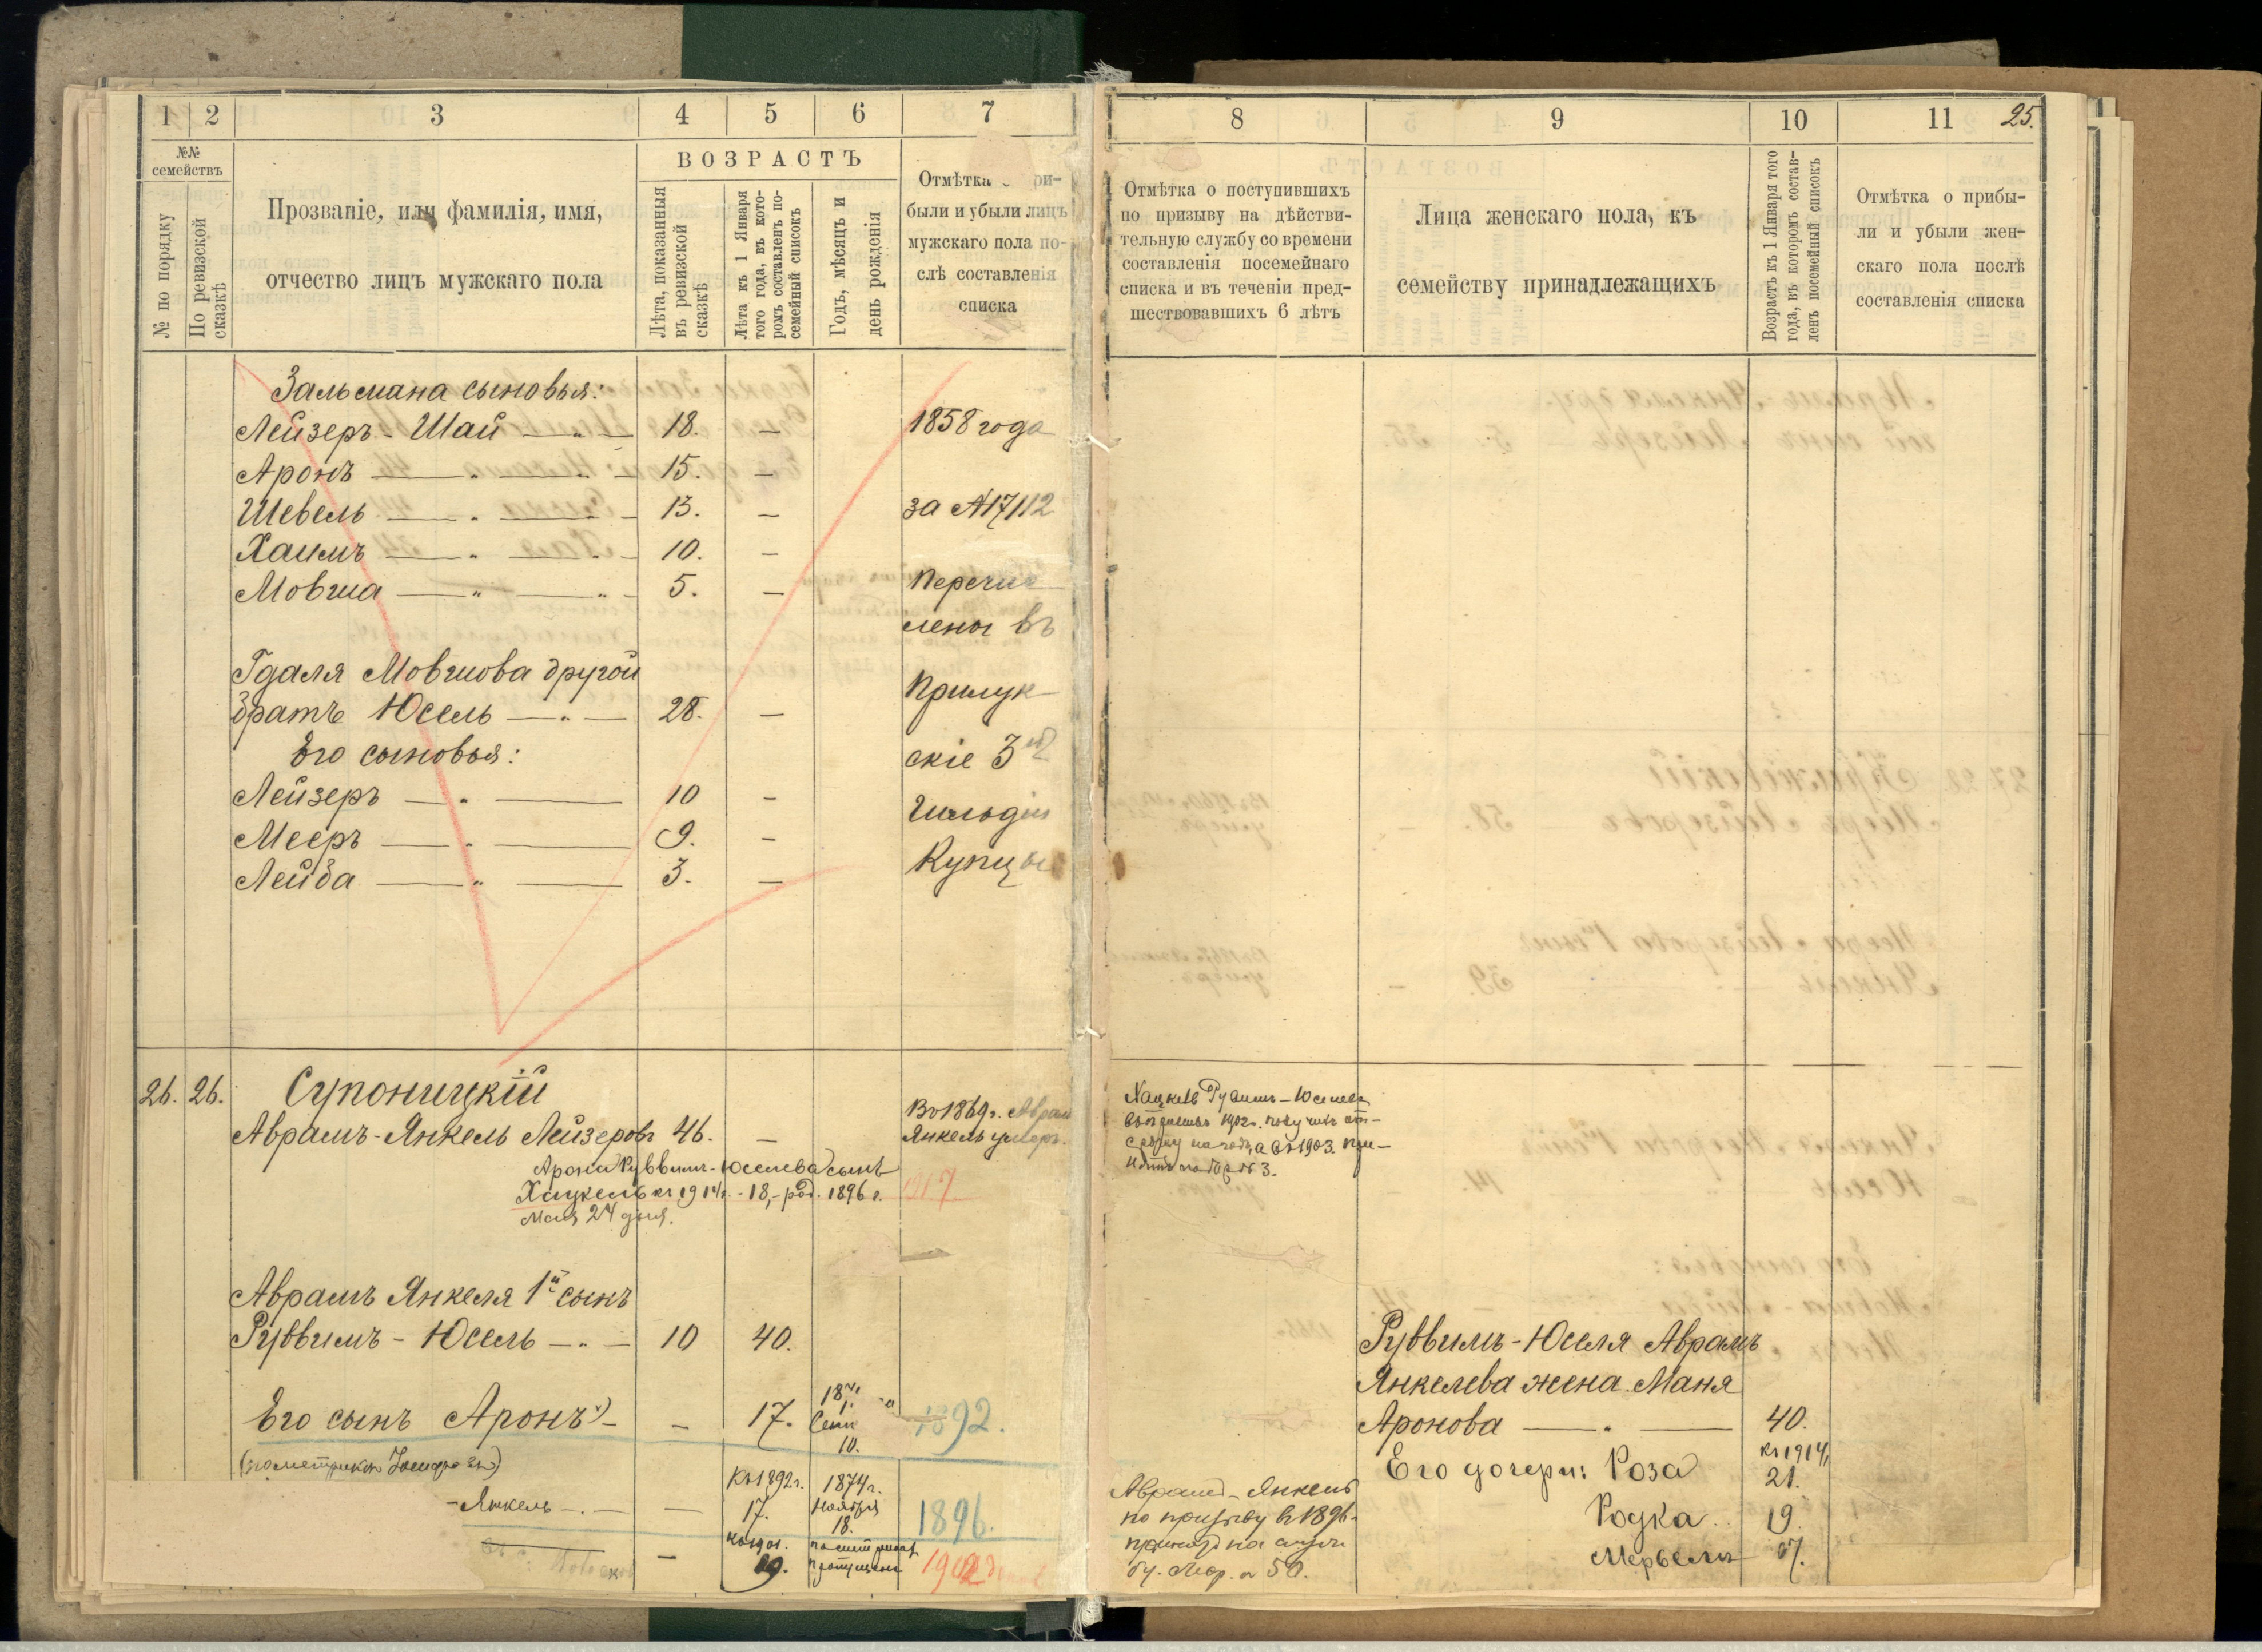 1 2 3 4 5 6 7
№№ семействъ
№ по порядку
По ревизской сказкѣ
Прозваніе, или фамилія, имя,
отчество лицъ мужскаго пола
ВОЗРАСТЪ
Лѣта, показанныя въ ревизской сказкѣ
Лѣта къ 1 Января того года, въ которомъ составленъ посемейный списокъ
Годъ, мѣсяцъ и день рожденія
Отмѣтка
были и убыли лицъ
мужскаго пола по-
слѣ составленія
списка
Зальмана сыновья:
Лейзеръ-Шай — „ — 18. — 1858 года
Аронъ — „ — 15. —
Шевель — „ — 13. — за №17112
Хаимъ — „ — 10. —
Мовша — „ — „ — 5. — Перечис
лены въ
Гдаля Мовшова другой
Прилук
братъ Юсель — „ — 28. —
Его сыновья: скіе 3ей
Лейзеръ — „ — 10 — Гильдіи
Мееръ — „ — 9. —
Лейба — „ — 3. — Купцы
26. 26. Супоницкій
Аврамъ-Янкель Лейзеровъ 46. —
Въ 1869г. Аврам
Янкель умеръ.
Арона Руввимъ-Юселева сынъ
Хацкель къ 1914г. - 18, - род. 1896 г. 1917
Мая 24 дня.
Аврамъ Янкеля 1й сынъ
Руввимъ - Юсель — „ — 10 40.
Его сынъ Аронъ — 17. 10. 1892.
(по метрикѣ
Къ 1892г. 1874г.
- Янкель — . — — 17. Ноября 18. 1896.
— 19. 1902
8 9 10 11 25.
Отмѣтка о поступившихъ
по призыву на дѣйстви-
тельную службу со времени
составленія посемейнаго
списка и въ теченіи пред-
шествовавшихъ 6 лѣтъ
Лица женскаго пола, къ
семейству принадлежащихъ
Возрастъ къ 1 Января того года, въ которомъ составленъ посемейный списокъ
Отмѣтка о прибы-
ли и убыли жен-
скаго пола послѣ
составленія списка
1902г.
на годъ, а въ 1903.
3.
Руввимъ-Юселя Аврамъ
Янкелева жена Маня
Аронова — „ — 40.
къ 1914г.
Его дочери: Роза 21.
19.
Аврамъ-Янкель
по призыву въ 1896